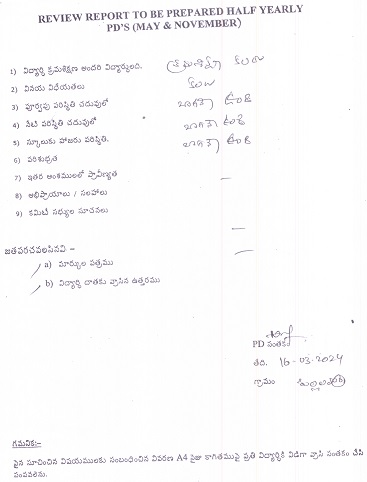 REVIEW REPORT TO BE PREPARED HALF YEARLY
PD'S (MAY & NOVEMBER)
1) విద్యార్థి క్రమశిక్షణ అందరి విద్యార్థులది. క్రమశిక్షణ కలదు
2) వినయ విధేయతలు కలదు
3) పూర్వపు పరిస్థితి చదువులో బాగానే ఉంది
4) నేటి పరిస్థితి చదువులో బాగానే ఉంది
5) స్కూలుకు హాజరు పరిస్థితి. బాగానే ఉంది
6) పరిశుభ్రత
7) ఇతర అంశములలో ప్రావీణ్యత –
8) అభిప్రాయాలు / సలహాలు
9) కమిటీ సభ్యుల సూచనలు –
జతపరచవలసినవి :- –
a) మార్కుల పత్రము
b) విద్యార్థి దాతకు వ్రాసిన ఉత్తరము
PD సంతకం
తేది. 16-03-2024
గ్రామం
గమనిక:-
పైన సూచించిన విషయములకు సంబంధించిన వివరణ A4 సైజు కాగితముపై ప్రతి విద్యార్థికి విడిగా వ్రాసి సంతకం చేసి
పంపవలెను.